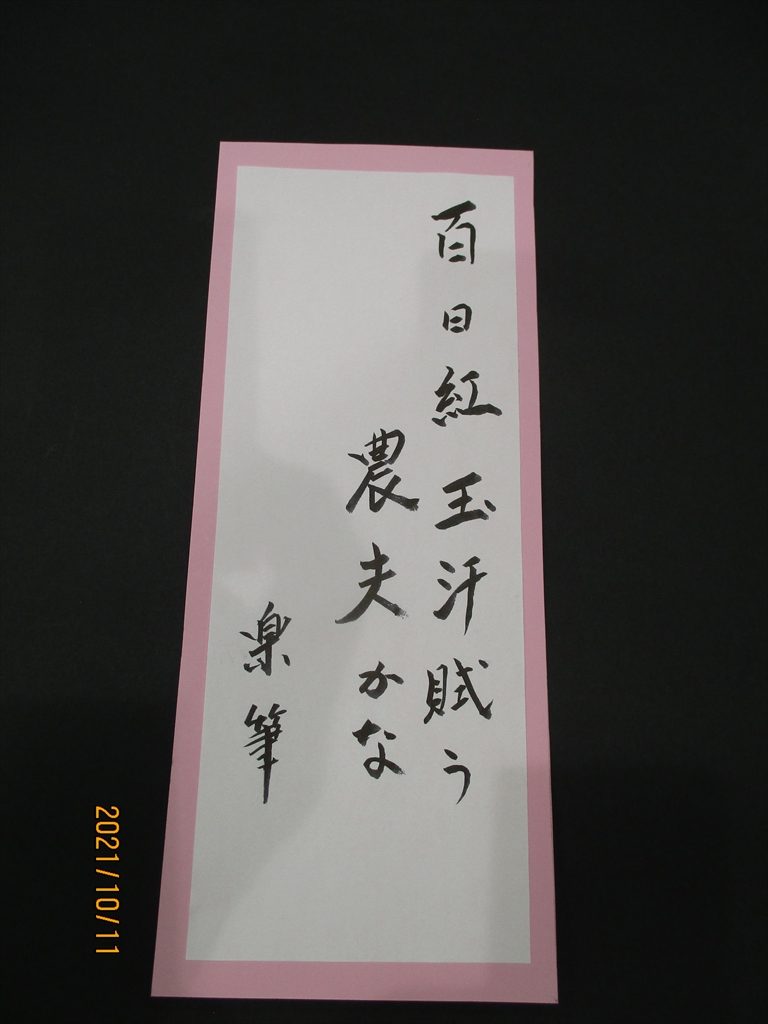 百日紅玉汗賦う
農夫かな
楽筆
2021/10/11